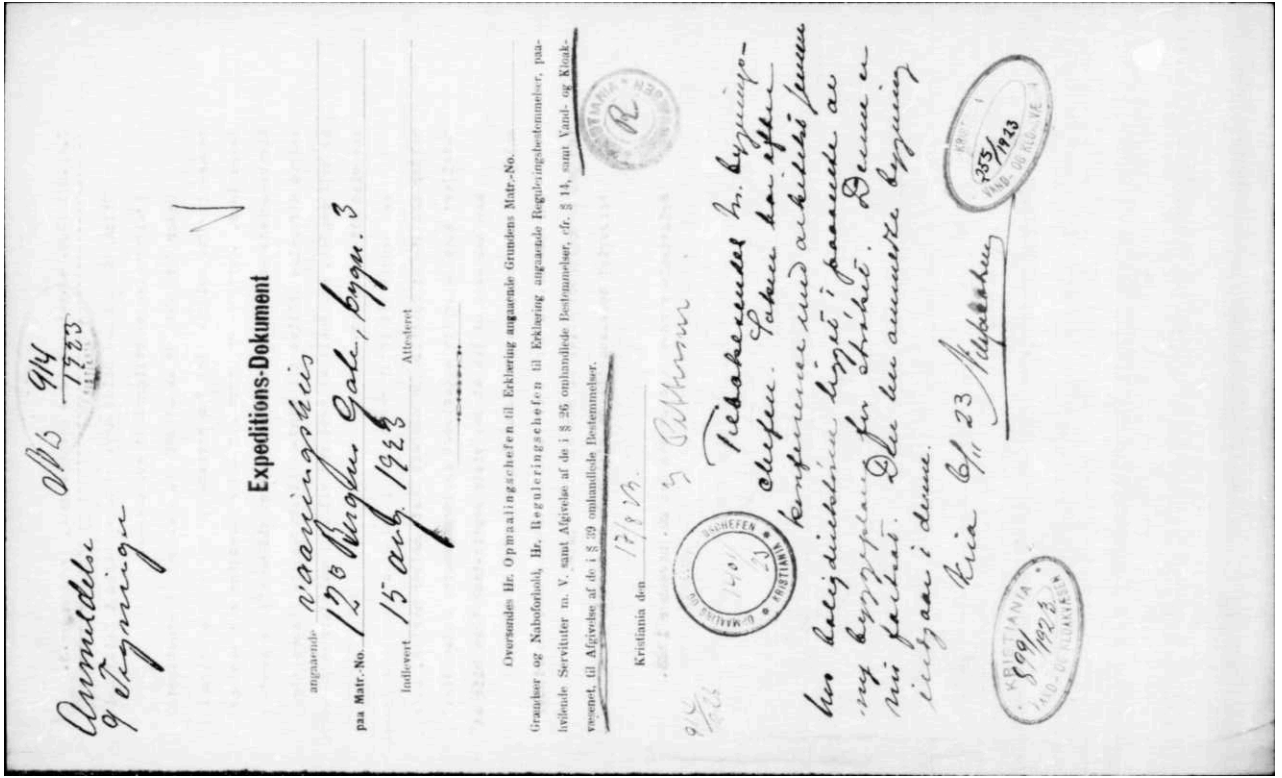 Anmeldelse
9 Tegninger
914
1923
Expeditions-Dokument
angaaende vaaningshus
paa Matr.-No. 12B Berghus Gate, bygn. 3
Indlevert 15 aug. 1923 Attesteret
Oversendes Hr. Opmaalingschefen til Erklæring angaaende Grundens Matr.-No.
Grændser og Naboforhold, Hr. Reguleringschefen til Erklæring angaaende Reguleringsbestemmelser, paa-
hvilende Servituter m. V. samt Afgivelse af de i § 26 omhandlede Bestemmelser, cfr. § 14, samt Vand- og Kloak-
væsenet, til Afgivelse af de i § 39 omhandlede Bestemmelser.
KRISTIANIA
R
Kristiania den 17/8 23.
914
OPMAALINGS OG SCHEFEN
KRISTIANIA
Tilbakesendes hr. bygnings-
chefen. Saken har efter
konferanse med arkitekt
hos boligdirektøren ligget i paavente av
ny byggeplan for strøket. Denne er
nu fastsat. Den her anmeldte bygning
indgaar i denne.
Kria 6/11 23
KRISTIANIA
899/1923
VAND- OG KLOAKVÆSEN
255/1923
VAND- OG KLOAKVÆ